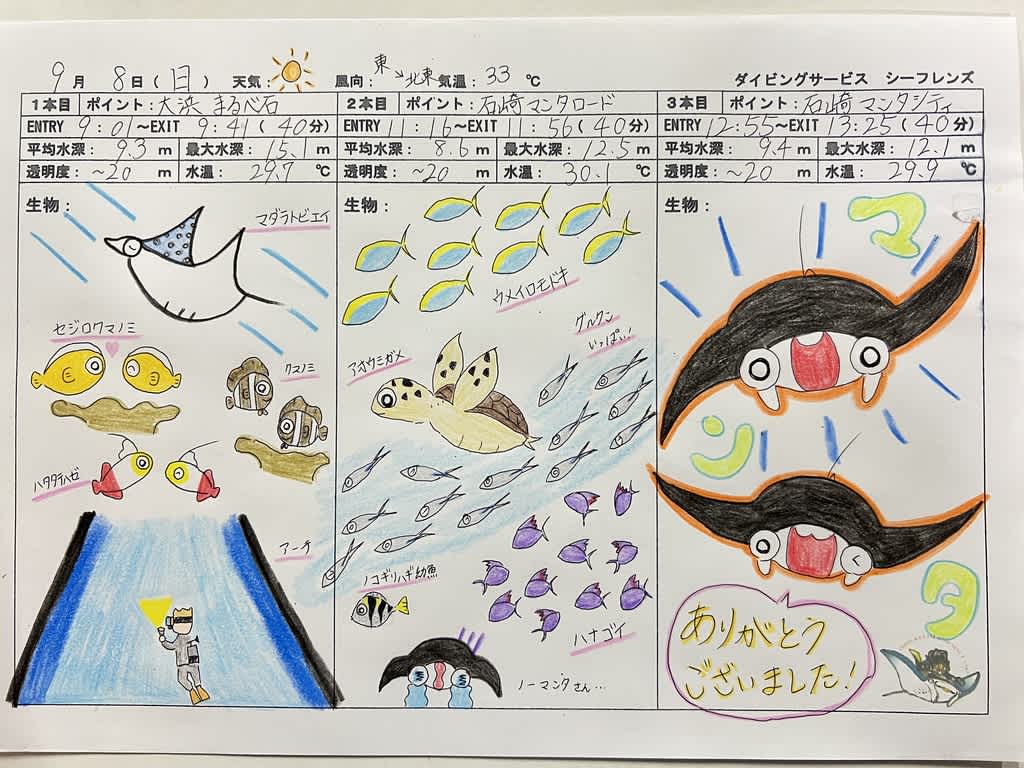 9月 8日(日) 天気: 風向:東→北東 気温:33 ℃ ダイビングサービス シーフレンズ
1本目 ポイント:大浜 まるべ石
ENTRY 9:01~EXIT 9:41(40分)
平均水深: 9.3 m 最大水深: 15.1 m
透明度: ~20 m 水温: 29.7 ℃
生物:
マダラトビエイ
セジロクマノミ
クマノミ
ハタタテハゼ
アーチ
2本目 ポイント:石崎マンタロード
ENTRY 11:16~EXIT 11:56(40分)
平均水深: 8.6 m 最大水深: 12.5 m
透明度: ~20 m 水温: 30.1 ℃
生物:
ウメイロモドキ
グルクン
いっぱい!
アオウミガメ
ノコギリハギ幼魚
ハナゴイ
ノーマンタさん…
3本目 ポイント:石崎 マンタシティ
ENTRY 12:55~EXIT 13:25(40分)
平均水深: 9.4 m 最大水深: 12.1 m
透明度: ~20 m 水温: 29.9 ℃
生物:
マ
ン
タ
ありがとう
ございました!